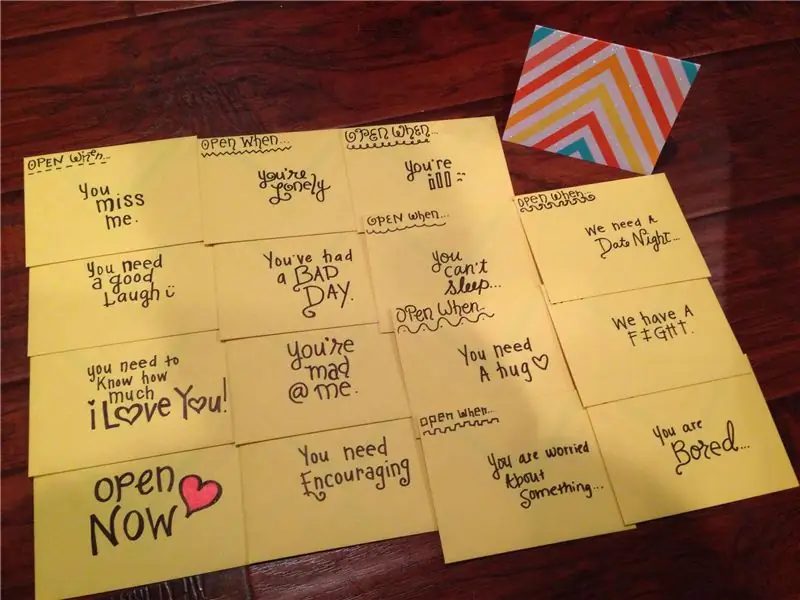 OPEN When...
You
miss
me.
You need
a good
Laugh
you need to
Know how
much
i Love You!
OPEN
NOW
OPEN When...
You're
Lonely
You've had
a BAD
DAY.
You're
mad
@ me.
You need
Encouraging
OPEN When...
You're
ill
OPEN When...
You
can't
sleep...
OPEN When...
You need
A hug
open when...
You are worried
About
Something...
OPEN When...
We need A
Date Night...
We have A
FIGHT.
You are
Bored...